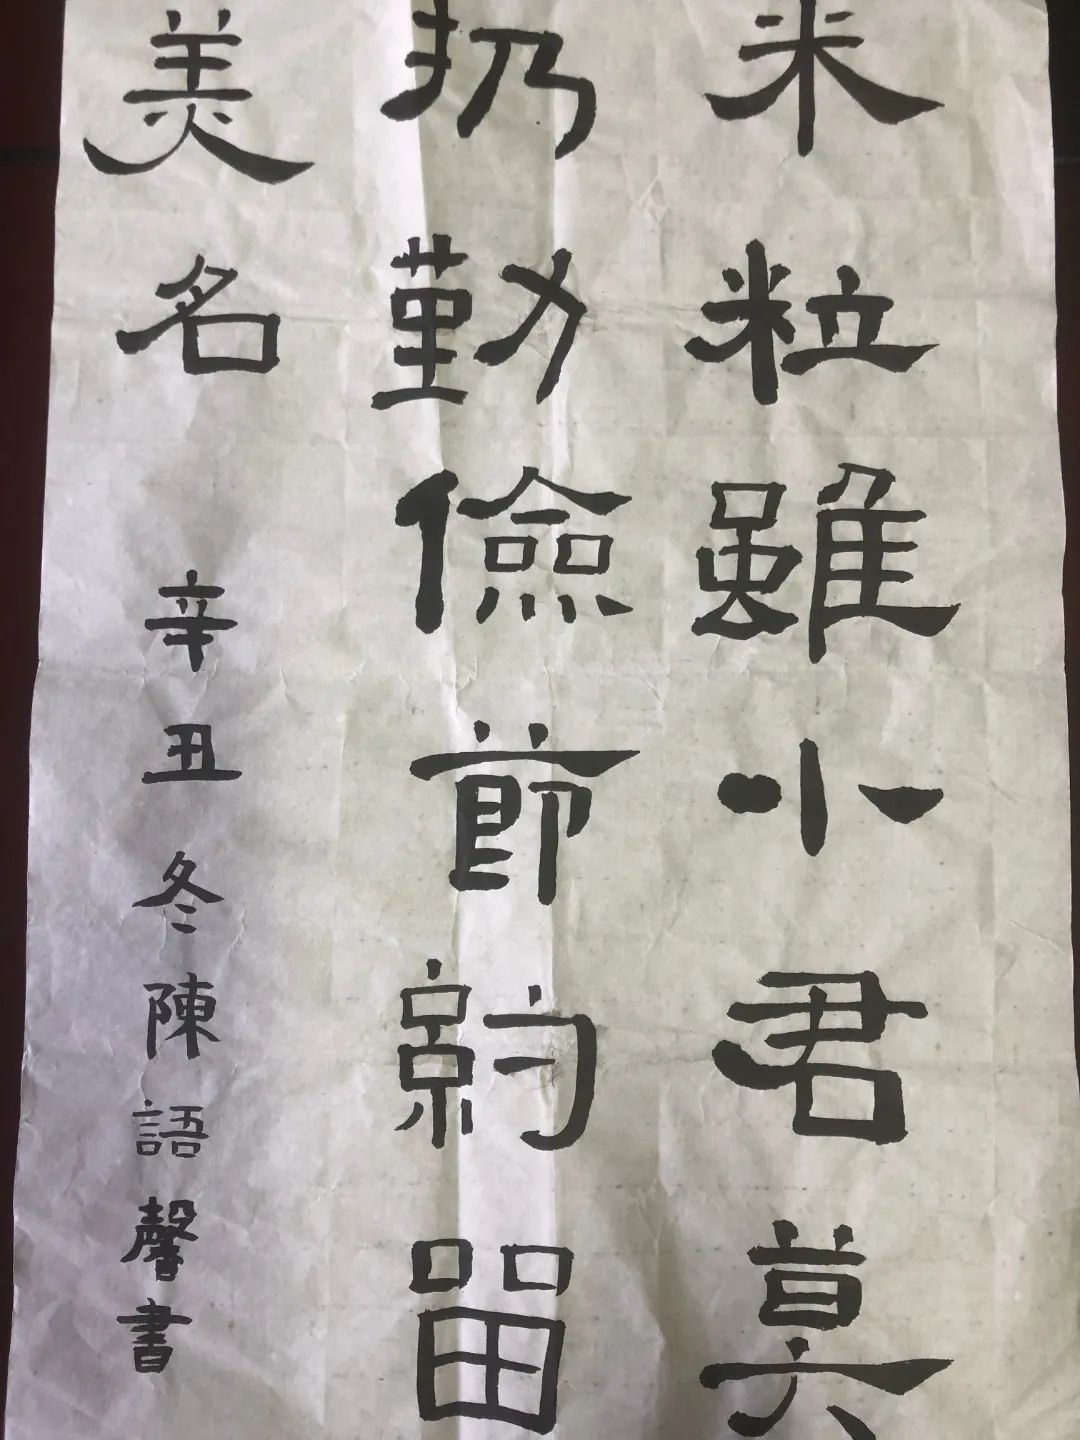 米粒雖小君莫
扔勤儉節約留
美名
辛丑冬陳語馨書